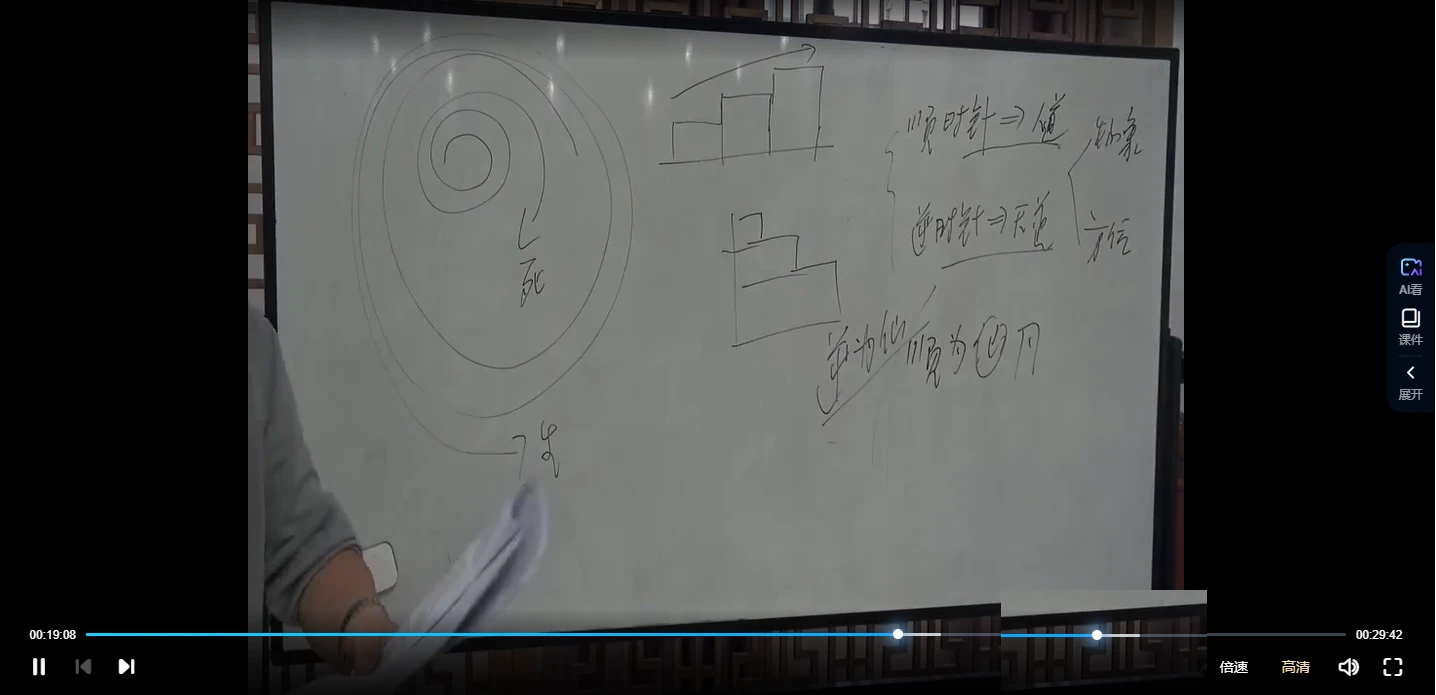 顺时针⇒人道
物象
逆时针⇒天道
方位
死
逆为仙 顺为
生
AI看
课件
展开
00:19:08
00:29:42
倍速
高清